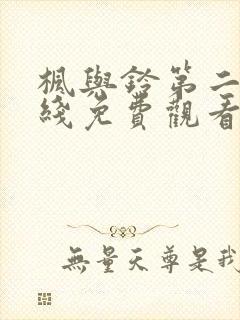 楓與鈴第二
綫免費觀看
無量天尊是我